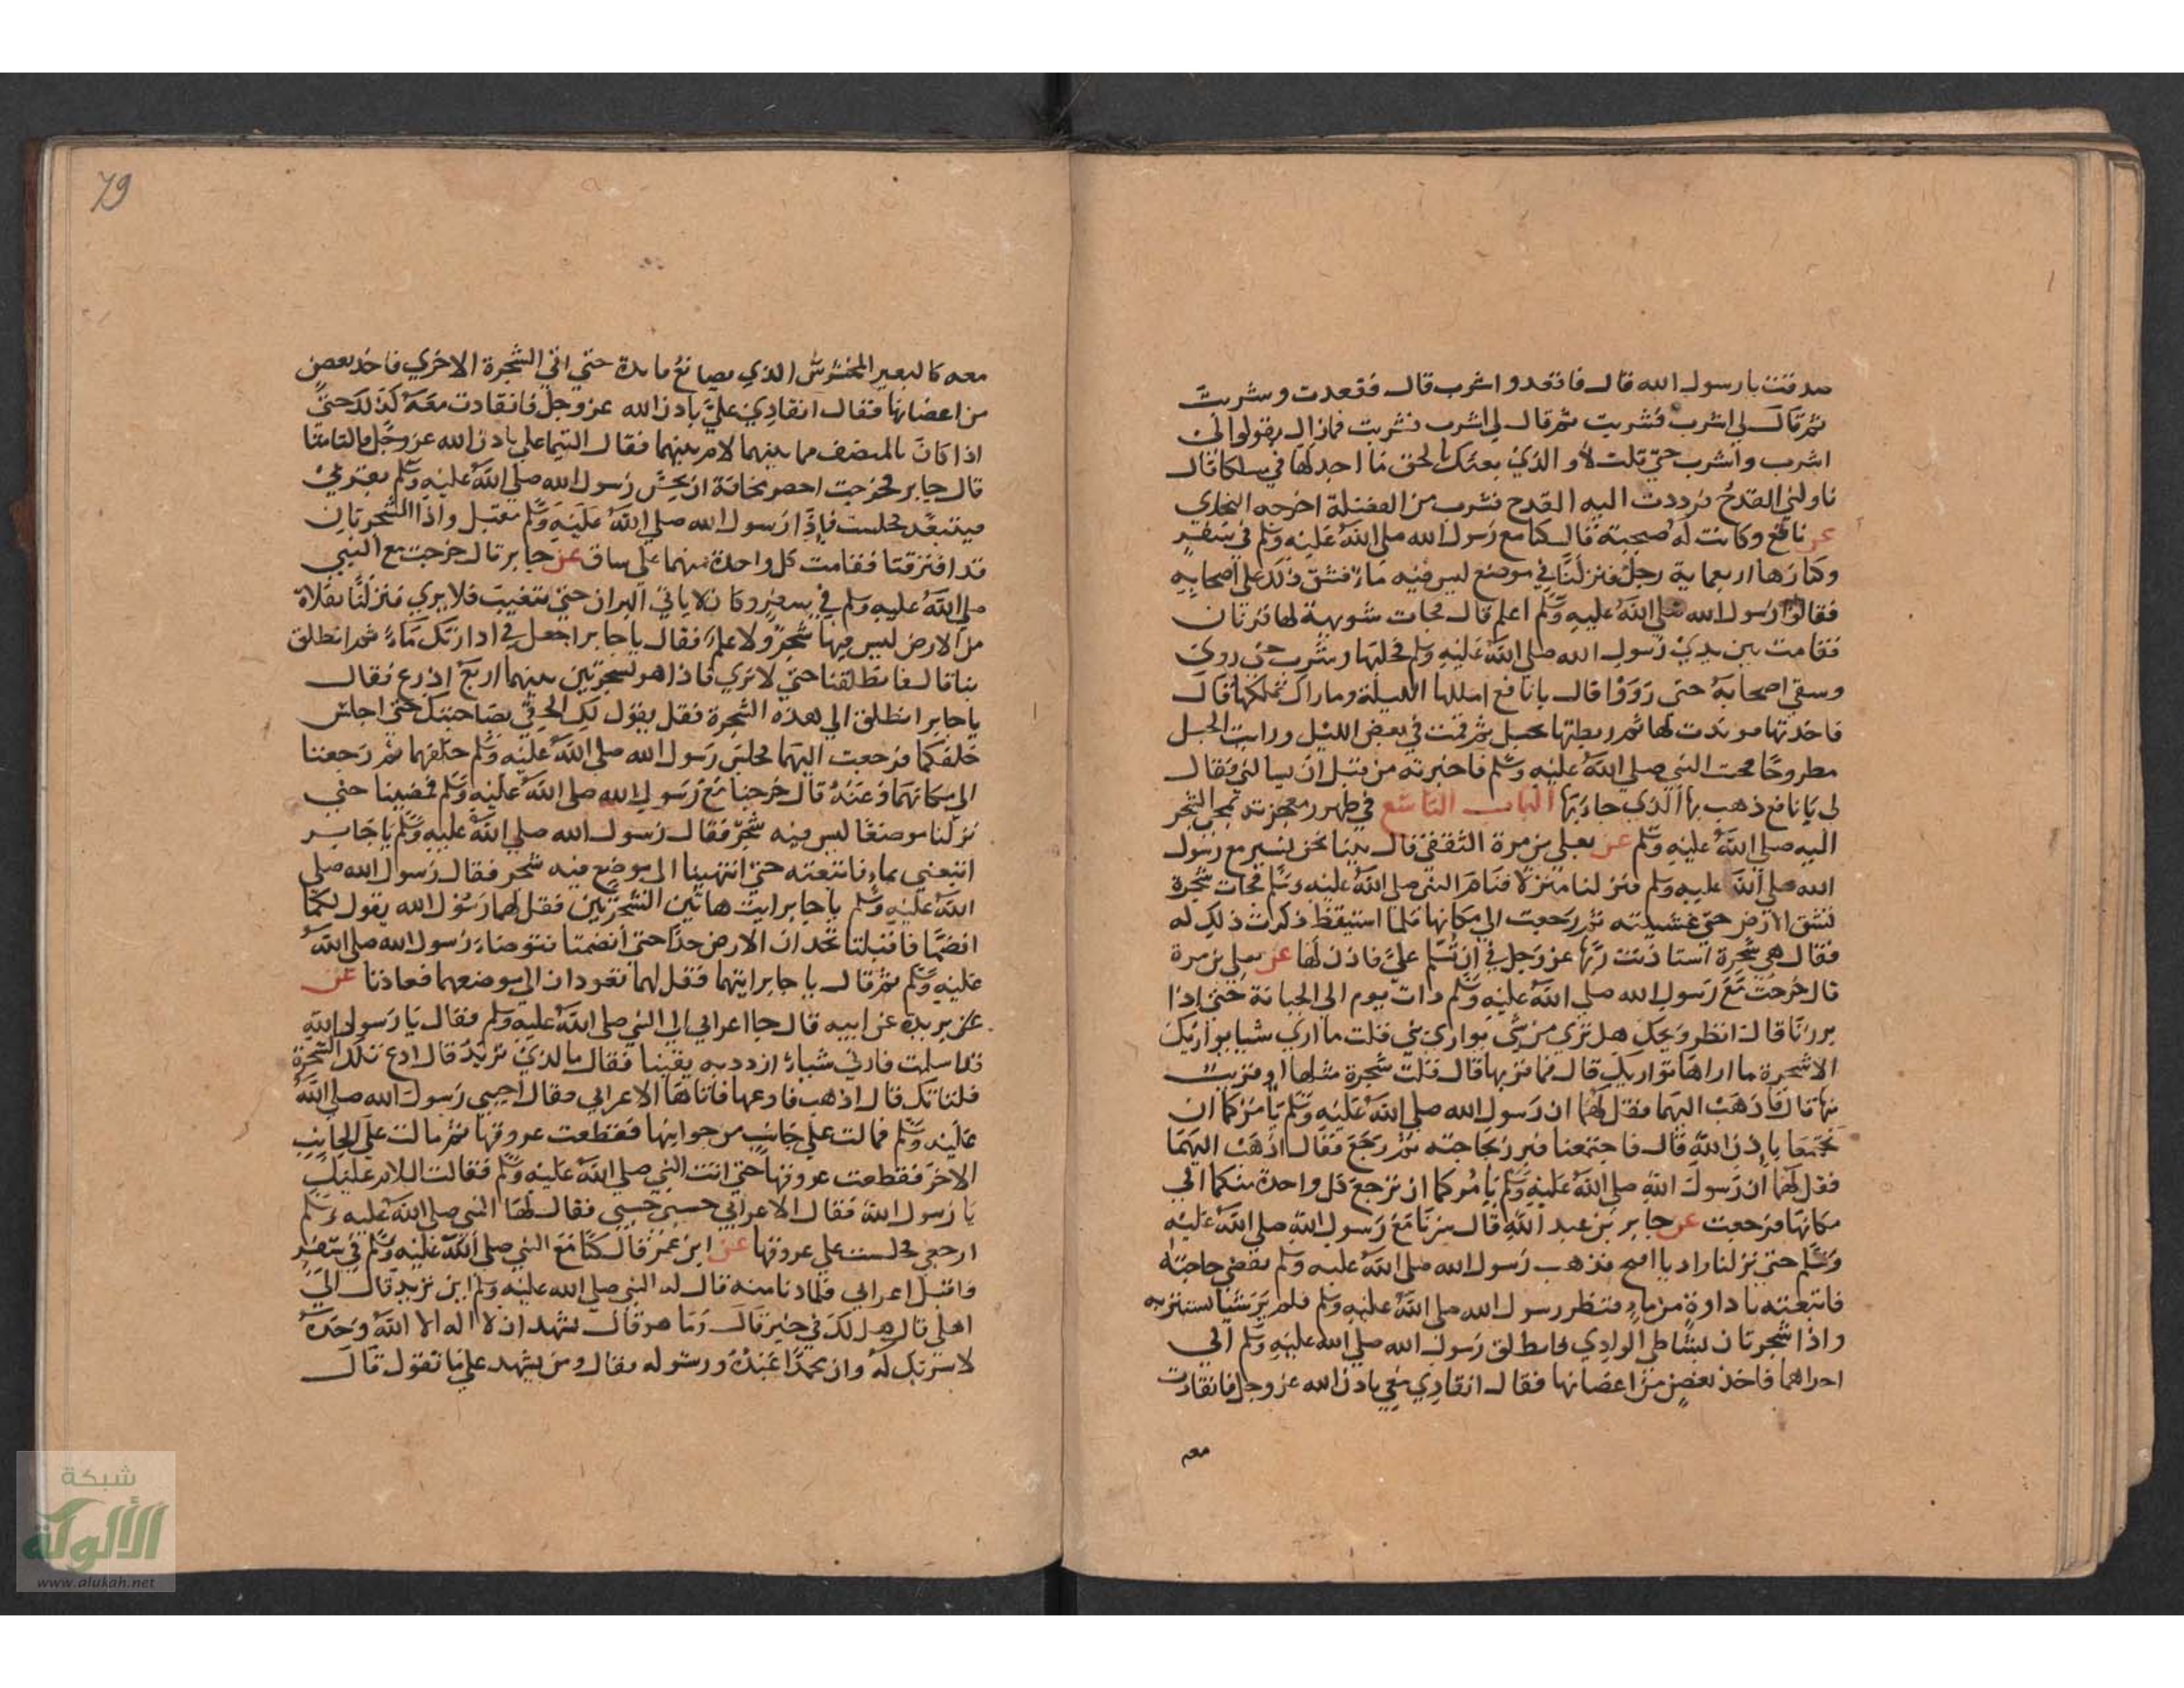 صدقت يا رسول الله قال فاقعد واشرب قال فقعدت وشربت
ثم قال لي اشرب فشربت ثم قال لي اشرب فشربت فمازال يقول اوالي
اشرب واشرب حتي قلت لا والذي بعثك بالحق ما اجد لها في مسلكا قال
ناولني القدح فرددت اليه القدح فشرب من الفضلة اخرجه البخاري
عن نافع وكانت له صحبة قال كنا مع رسول الله صلي الله عليه وسلم في سفر
وكنا زهااربعماية رجل فنزلنا في موضع ليس فيه ماء فشق ذلك علي اصحابه
فقالوا رسول الله صلي الله عليه وسلم اعلم قال فجات شويهة لها قرنان
فقامت بين يدي رسول الله صلي الله عليه وسلم فحلبها وشرب حتي روي
وسقي اصحابه حتي رووا قال يا نافع املكها الليلة وما اراك تملكها قال
فاخذتها فوتدت لها ثم ربطتها بحبل ثم قمت في بعض الليل ورايت الحبل
مطروحا فجت النبي صلي الله عليه وسلم فاخبرته من قبل ان يسالني فقال
لي يا نافع ذهب بها الذي جاء بها الباب التاسع في ظهور معجزته بمجي الشجر
اليه صلي الله عليه وسلم عن يعلي بن مرة الثقفي قال بينا نحن نسير مع رسول
الله صلي الله عليه وسلم فنزلنا منزلا فنام النبي صلي الله عليه وسلم فجات شجرة
تشق الارض حتي غشيته ثم رجعت الي مكانها فلما استيقظ ذكرت ذلك له
فقال هي شجرة استاذنت ربها عز وجل في ان تسلم علي فاذن لها عن يعلي بن مرة
قال خرجت مع رسول الله صلي الله عليه وسلم ذات يوم الي الجبانة حتي اذا
برزنا قال انظر ويحك هل تري من شي يواري ني قلت ما اري شيا يواريك
الا شجرة ما اراها تواريك قال فما قربها قال قلت شجرة مثلها او قريب
منها قال فاذهب اليهما فقل لهما ان رسول الله صلي الله عليه وسلم يامركما ان
تجتمعا باذن الله قال فاجتمعنا فبرز لحاجته ثم رجع فقال اذهب اليهما
فقل لهما ان رسول الله صلي الله عليه وسلم يامركما ان ترجع كل واحدة منكما الي
مكانها فرجعت عن جابر بن عبد الله قال سرنا مع رسول الله صلي الله عليه
وسلم حتي نزلنا واديا افيح فذهب رسول الله صلي الله عليه وسلم يقضي حاجته
فاتبعته باداوة من ماء فنظر رسول الله صلي الله عليه وسلم فلم ير شيا يستتر به
واذا شجرتان بشاطي الوادي فانطلق رسول الله صلي الله عليه وسلم الي
احداهما فاخذ بغصن من اغصانها فقال انقادي معي باذن الله عز وجل فانقادت
معه
79
معه كالبعير المخشوش الذي يصانع قايده حتي اتي الشجرة الاخري فاخذ بغصن
من اغصانها فقال انقادي علي باذن الله عز وجل فانقادت معه كذلك حتي
اذا كان بالمنصف مما بينهما لام بينهما فقال التيما علي باذن الله عز وجل فالتامتا
قال جابر فخرجت احضر مخافة ان يحس رسول الله صلي الله عليه وسلم بقربي
فيتبعد فجلست فاذا رسول الله صلي الله عليه وسلم مقبل واذا الشجرتان
قد افترقتا فقامت كل واحدة منهما علي ساق عن جابر قال خرجت مع النبي
صلي الله عليه وسلم في سفر وكان لا ياتي البراز حتي يتغيب فلا يري فنزلنا بفلاة
من الارض ليس فيها شجر ولا علم فقال يا جابر اجعل في اداوتك ماء ثم انطلق
بنا قال فانطلقنا حتي لا نري فاذا هو بشجرتين بينهما اربع اذرع فقال
يا جابر انطلق الي هذه الشجرة فقل يقول لك الحقي بصاحبتك حتي اجلس
خلفكما فرجعت اليهما فجلس رسول الله صلي الله عليه وسلم خلفهما ثم رجعتا
الي مكانهما وعنه قال خرجنا مع رسول الله صلي الله عليه وسلم فمضينا حتي
نزلنا موضعا ليس فيه شجر فقال رسول الله صلي الله عليه وسلم يا جابر
اتبعني بماء فاتبعته حتي انتهينا الي موضع فيه شجر فقال رسول الله صلي
الله عليه وسلم يا جابر ايت هاتين الشجرتين فقل لهما رسول الله يقول لكما
انضما فاقبلتا تخدان الارض خدا حتي انضمتا فتوضاء رسول الله صلي الله
عليه وسلم ثم قال يا جابر ايتهما فقل لهما تعودان الي موضعهما فعادتا عن
عن بريدة عن ابيه قال جا اعرابي الي النبي صلي الله عليه وسلم فقال يا رسول الله
قد اسلمت فارني شياء ازدد به يقينا فقال ما الذي تريد قال ادع تلك الشجرة
فلتاتك قال اذهب فادعها فاتاها الاعرابي فقال اجيبي رسول الله صلي الله
عليه وسلم فمالت علي جانب من جوانبها فقطعت عروقها ثم مالت علي الجانب
الاخر فقطعت عروقها حتي اتت النبي صلي الله عليه وسلم فقالت السلام عليك
يا رسول الله فقال الاعرابي حسبي حسبي فقال لها النبي صلي الله عليه وسلم
ارجعي فجلست علي عروقها عن ابن عمر قال كنا مع النبي صلي الله عليه وسلم في سفر
واقبل اعرابي فلما دنا منه قال له النبي صلي الله عليه وسلم اين تريد قال الي
اهلي قال هل لك في خير قال وما هو قال تشهد ان لا اله الا الله وحده
لا شريك له وان محمدا عبده ورسوله فقال ومن يشهد علي ما تقول قال
شبكة
الألوكة
www.alukah.net